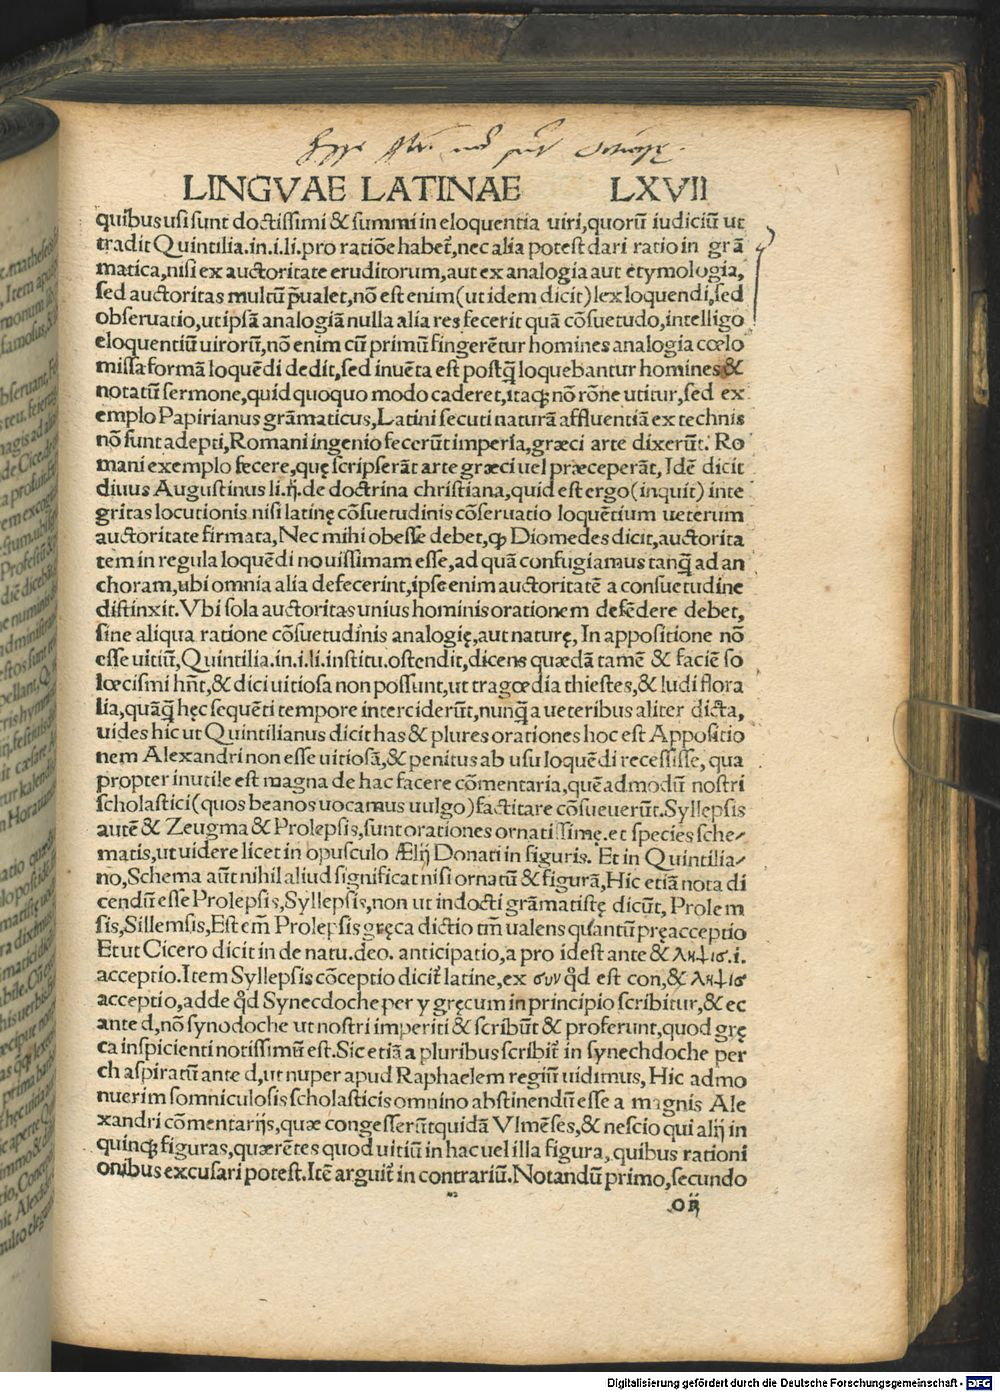 LINGVAE LATINAE LXVII
quibus usi sunt doctissimi & summi in eloquentia uiri, quorū iudiciū ut
tradit Quintilia.in.i.li.pro ratiōe habet̄, nec alia potest dari ratio in grā
matica, nisi ex auctoritate eruditorum, aut ex analogia aut etymologia,
sed auctoritas multū p̄ualet, nō est enim (ut idem dicit) lex loquendi, sed
obseruatio, ut ipsā analogiā nulla alia res fecerit quā cōsuetudo, intelligo
eloquentiū uirorū, nō enim cū primū fingerētur homines analogia cœlo
missa formā loquēdi dedit, sed inuēta est postq̄ loquebantur homines &
notatū sermone, quid quoquo modo caderet, itaqꝫ nō rōne utitur, sed ex
emplo Papirianus grāmaticus, Latini secuti naturā affluentiā ex technis
nō sunt adepti, Romani ingenio fecerūt imperia, græci arte dixerūt. Ro
mani exemplo fecere, quę scripserāt arte græci uel præceperāt, Idē dicit
diuus Augustinus li.ij.de doctrina christiana, quid est ergo (inquit) inte
gritas locutionis nisi latinę cōsuetudinis cōseruatio loquētium ueterum
auctoritate firmata, Nec mihi obesse debet, ꝙ Diomedes dicit, auctorita
tem in regula loquēdi nouissimam esse, ad quā confugiamus tanq̄ ad an
choram, ubi omnia alia defecerint, ipse enim auctoritatē a consuetudine
distinxit. Vbi sola auctoritas unius hominis orationem defēdere debet,
sine aliqua ratione cōsuetudinis analogię, aut naturę, In appositione nō
esse uitiū, Quintilia.in.i.li.institu.ostendit, dicens quædā tamē & faciē so
lœcismi hn̄t, & dici uitiosa non possunt, ut tragœdia thiestes, & ludi flora
lia, quāq̄ hęc sequēti tempore interciderūt, nunq̄ a ueteribus aliter dicta,
uides hic ut Quintilianus dicit has & plures orationes hoc est Appositio
nem Alexandri non esse uitiosā, & penitus ab usu loquēdi recessisse, qua
propter inutile est magna de hac facere cōmentaria, quēadmodū nostri
scholastici (quos beanos uocamus uulgo) factitare cōsueuerūt. Syllepsis
autē & Zeugma & Prolepsis, sunt orationes ornatissimę. et species sche⸗
matis, ut uidere licet in opusculo Ælij Donati in figuris. Et in Quintilia⸗
no, Schema aūt nihil aliud significat nisi ornatū & figurā, Hic etiā nota di
cendū esse Prolepsis, Syllepsis, non ut indocti grāmatistę dicūt, Prolem
sis, Sillemsis, Est em̄ Prolepsis gręca dictio tm̄ ualens quantū pręacceptio
Et ut Cicero dicit in de natu.deo. anticipatio, a pro idest ante & ληψισ.i.
acceptio. Item Syllepsis cōceptio dicit̄ latine, ex συν qd̄ est con, & ληψισ
acceptio, adde qd̄ Synecdoche per y gręcum in principio scribitur, & ec
ante d, nō synodoche ut nostri imperiti & scribūt & proferunt, quod grę
ca inspicienti notissimū est. Sic etiā a pluribus scribit̄ in synechdoche per
ch aspiratū ante d, ut nuper apud Raphaelem regiū uidimus, Hic admo
nuerim somniculosis scholasticis omnino abstinendū esse a magnis Ale
xandri cōmentarijs, quæ congesserūt quidā Vlmēses, & nescio qui alij in
quinqꝫ figuras, quærētes quod uitiū in hac uel illa figura, quibus rationi
onibus excusari potest. Itē arguit̄ in contrariū. Notandū primo, secundo
Digitalisierung gefördert durch die Deutsche Forschungsgemeinschaft - DFG